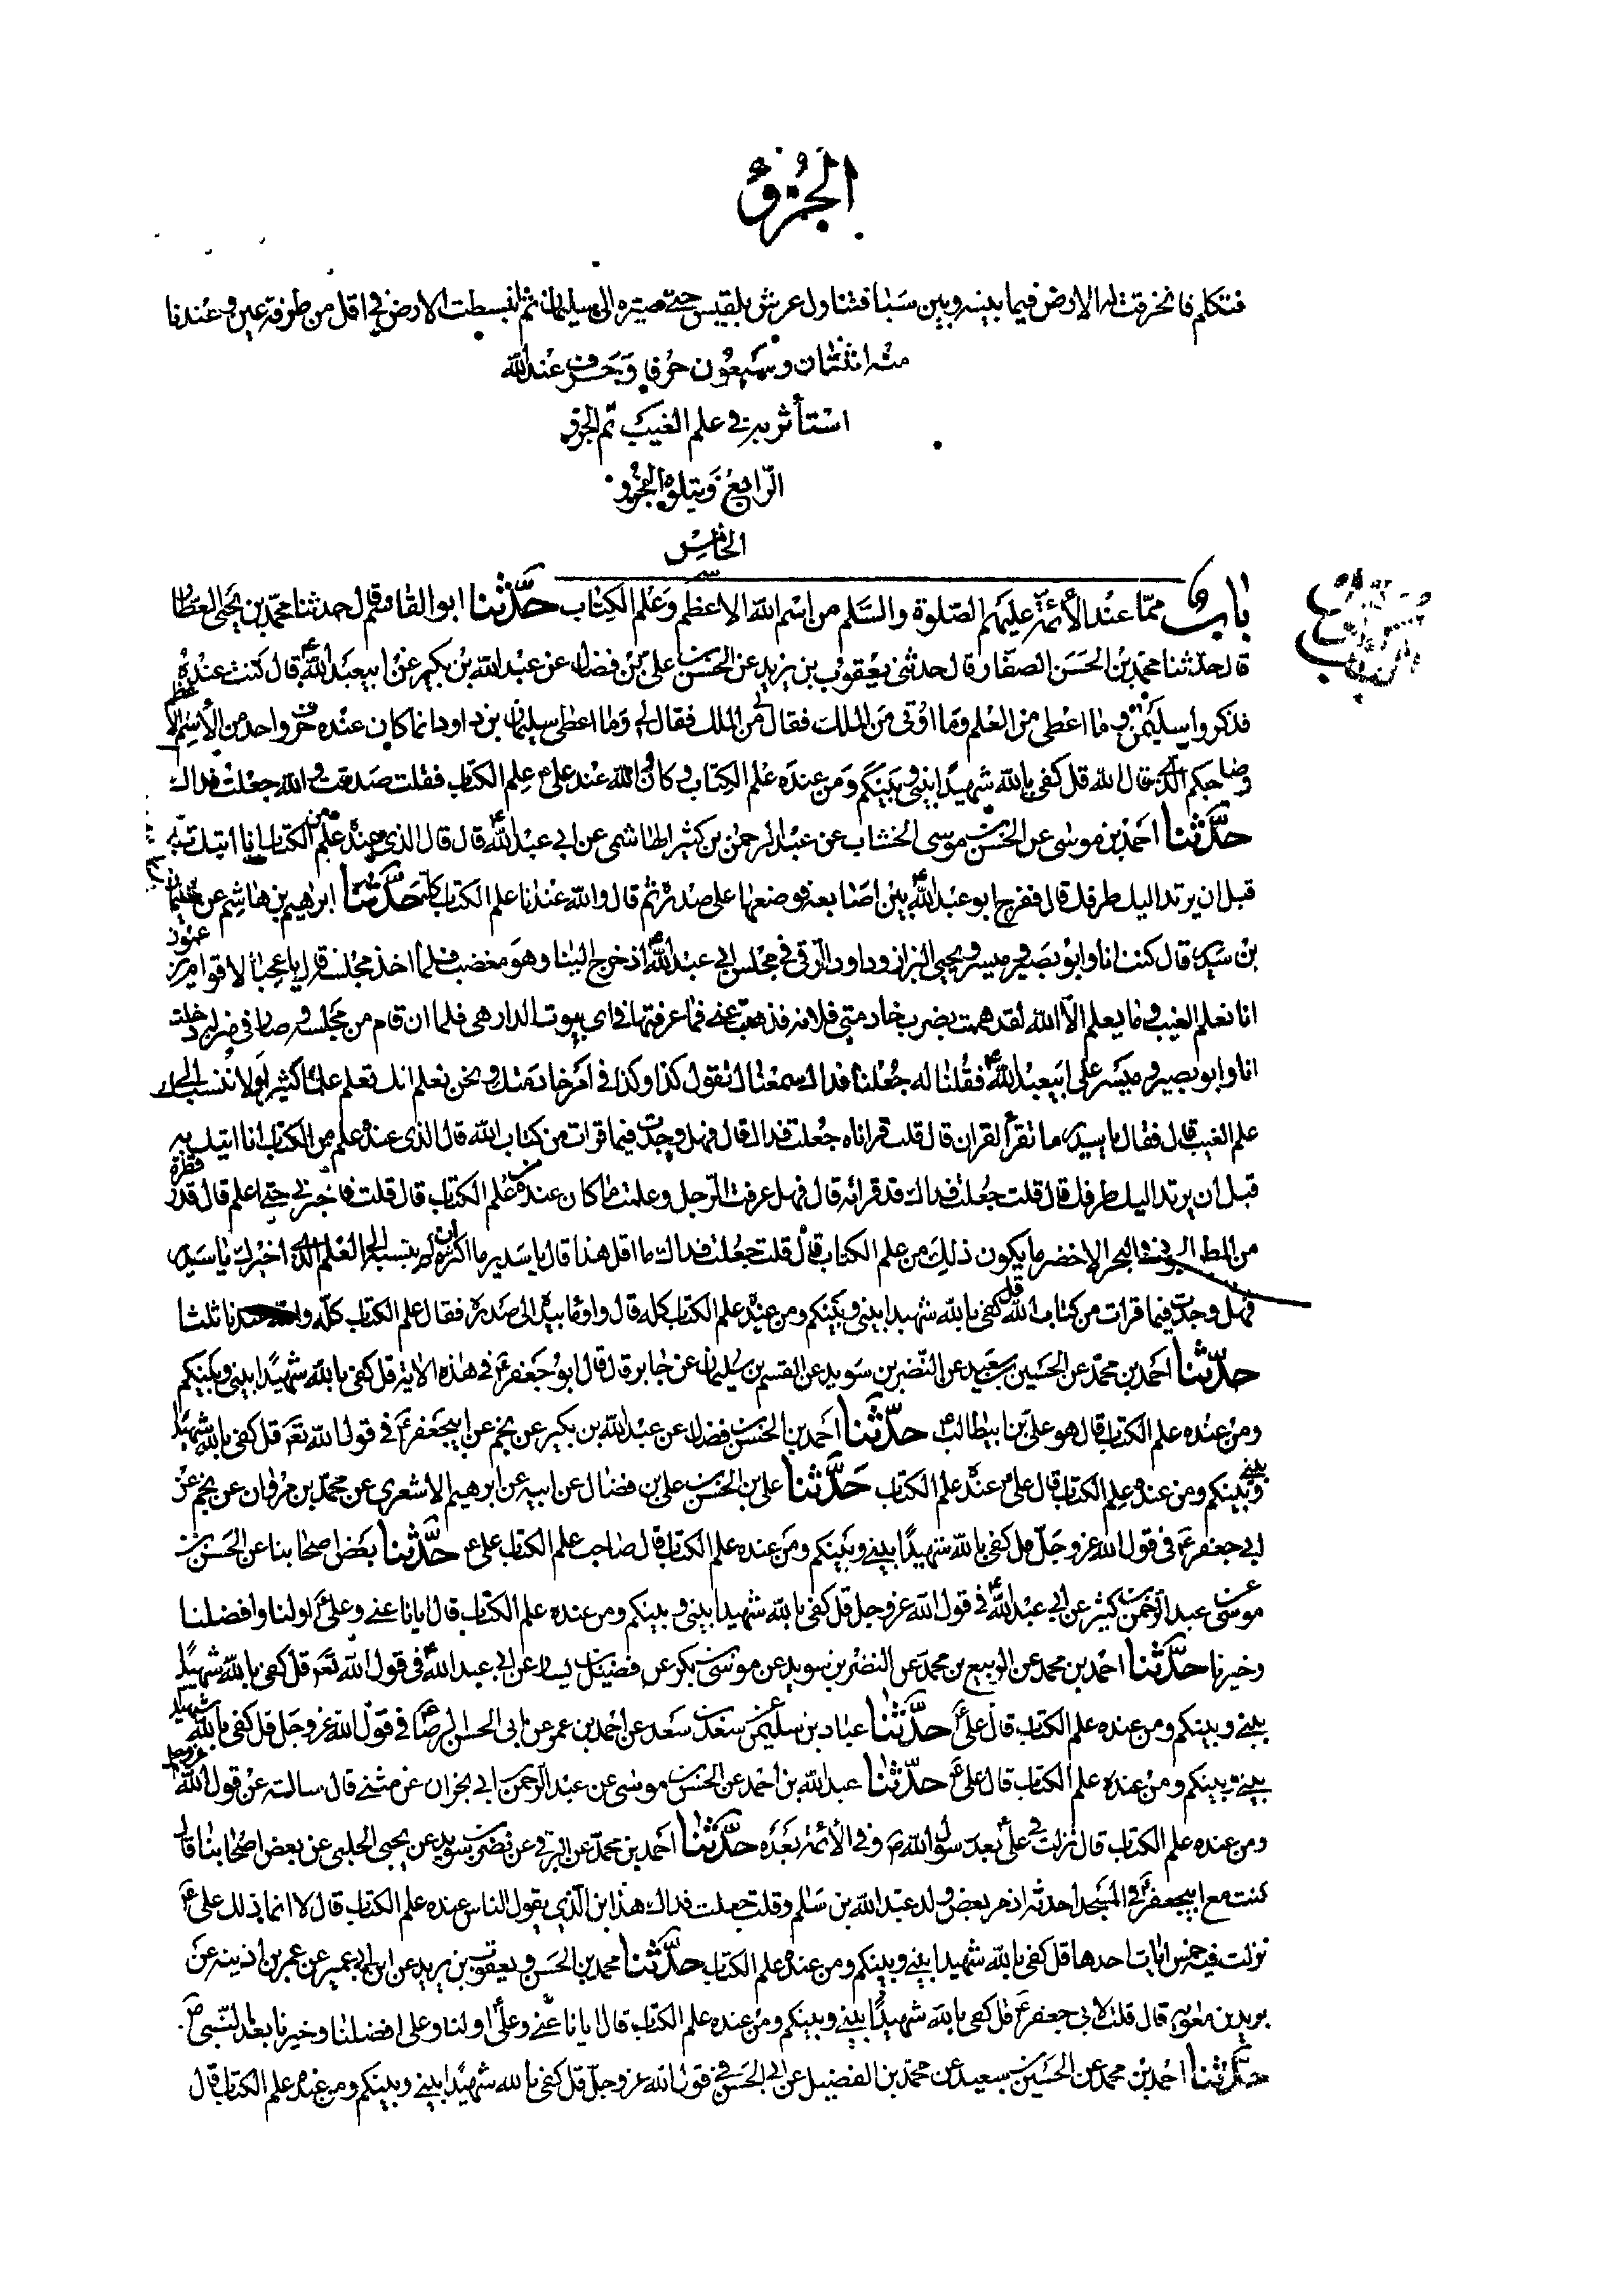 الجزؤ
فتكلم فانخرقت له الارض فيما بينه وبين سبا فتناول عرش بلقيس حتى صيره الى سليمان ثم انبسطت الارض في اقل من طرفة عين وعندنا
منه اثنتان وسبعون حرفا وحرف عند الله
استأثر به في علم الغيب تم الجزؤ
الرابع ويتلوه الجزو
الخامس
باب مما عند الأئمة عليهم الصلوة والسلم من اسم الله الاعظم وعلم الكتاب حدثنا ابو القاسم قال حدثنا محمد بن يحيى العطار
قال حدثنا محمد بن الحسن الصفار قال حدثنى يعقوب بن يزيد عن الحسن بن على بن فضال عن عبد الله بن بكير عن ابيعبد الله ع قال كنت عنده
فذكروا سليمن وما اعطى من العلم وما اوتى من الملك فقال لى وما اعطى سليمان بن داود انما كان عنده حرف واحد من الأسم الاعظم
وصاحبكم الذى قال الله قل كفى بالله شهيدا بينى وبينكم ومن عنده علم الكتاب وكان والله عند على ع علم الكتاب فقلت صدقت والله جعلت فداك
حدثنا احمد بن موسى عن الحسن بن موسى الخشاب عن عبد الرحمن بن كثير الهاشمى عن ابى عبد الله ع قال قال الذى عنده علم من الكتاب انا اتيك به
قبل ان يرتد اليك طرفك قال ففرج ابو عبد الله ع بين اصابعه فوضعها على صدره ثم قال والله عندنا علم الكتاب كله حدثنا ابرهيم بن هاشم عن سليمان
بن سدير قال كنت انا وابو بصير وميسر ويحيى البزاز وداود الرقى فى مجلس ابى عبد الله ع اذ خرج الينا وهو مغضب فلما اخذ مجلسه قال يا عجبا لاقوام يزعمون
انا نعلم الغيب وما يعلم الا الله لقد هممت بضرب خادمتى فلانة فذهبت عنى فما عرفتها فى اى بيوت الدار هى فلما ان قام من مجلسه وصار فى منزله دخلت
انا وابو بصير وميسر على ابيعبد الله ع فقلنا له جعلنا فداك سمعناك تقول كذا وكذا فى امر خادمتك ونحن نعلم انك تعلم علما كثيرا ولا ننسبك الى
علم الغيب قال فقال يا سدير ما تقرأ القران قال قلت قراناه جعلت فداك قال فهل وجدت فيما قرات من كتاب الله قال الذى عنده علم من الكتاب انا اتيك به
قبل ان يرتد اليك طرفك قال قلت جعلت فداك قد قراته قال فهل عرفت الرجل وعلمت ما كان عنده من علم الكتاب قال قلت فاخبرنى حتى اعلم قال قدر قطرة
من المطر فى البحر الاخضر ما يكون ذلك من علم الكتاب قال قلت جعلت فداك ما اقل هذا قال يا سدير ما اكثره ان لم ينسبه الى العلم الذى اخبرك يا سدير
فهل وجدت فيما قرات من كتاب الله قل كفى بالله شهيدا بينى وبينكم ومن عنده علم الكتاب كله قال واومأ بيده الى صدره فقال علم الكتاب كله والله عندنا ثلثا
حدثنا احمد بن محمد عن الحسين بن سعيد عن النضر بن سويد عن القسم بن سليمان عن جابر قال قال ابو جعفر ع فى هذه الاية قل كفى بالله شهيدا بينى وبينكم
ومن عنده علم الكتاب قال هو على بن ابيطالب ع حدثنا احمد بن الحسن بن فضال عن عبد الله بن بكير عن نجم عن ابيجعفر ع فى قول الله تع قل كفى بالله شهيدا
بينى وبينكم ومن عنده علم الكتاب قال على عنده علم الكتاب حدثنا على بن الحسن بن على بن فضال عن ابيه عن ابرهيم الاشعرى عن محمد بن مروان عن نجم عن
ابى جعفر ع فى قول الله عز وجل قل كفى بالله شهيدا بينى وبينكم ومن عنده علم الكتاب قال صاحب علم الكتاب على ع حدثنا بعض اصحابنا عن الحسن بن
موسى عن عبد الرحمن بن كثير عن ابى عبد الله ع فى قول الله عز وجل قل كفى بالله شهيدا بينى وبينكم ومن عنده علم الكتاب قال ايانا عنى وعلى ع اولنا وافضلنا
وخيرنا حدثنا احمد بن محمد عن الربيع بن محمد عن النضر بن سويد عن موسى بن بكر عن فضيل بن يسار عن ابى عبد الله ع فى قول الله تع قل كفى بالله شهيدا
بينى وبينكم ومن عنده علم الكتاب قال على ع حدثنا عباد بن سليمن عن سعد بن سعد عن احمد بن عمر عن ابى الحسن الرضا ع فى قول الله عز وجل قل كفى بالله شهيدا
بينى وبينكم ومن عنده علم الكتاب قال على ع حدثنا عبد الله بن احمد عن الحسن بن موسى عن عبد الرحمن بن ابى نجران عن مثنى قال سالته عن قول الله عز وجل
ومن عنده علم الكتاب قال نزلت فى على ع بعد رسول الله ص وفى الأئمة بعده حدثنا احمد بن محمد عن البرقى عن نضر بن سويد عن يحيى الحلبى عن بعض اصحابنا قال
كنت مع ابيجعفر ع فى المسجد احدثه اذ مر بعض ولد عبد الله بن سلام وقلت جعلت فداك هذا ابن الذى يقول الناس عنده علم الكتاب قال لا انما ذلك على ع
نزلت فيه خمس ايات احدها قل كفى بالله شهيدا بينى وبينكم ومن عنده علم الكتاب حدثنا محمد بن الحسن ويعقوب بن يزيد عن ابن ابى عمير عن عمر بن اذينه عن
بريد بن معويه قال قلت لابى جعفر ع قل كفى بالله شهيدا بينى وبينكم ومن عنده علم الكتاب قال ايانا عنى وعلى ع اولنا وعلى افضلنا وخيرنا بعد النبى ص
حدثنا احمد بن محمد عن الحسين بن سعيد عن محمد بن الفضيل عن ابى الحسن ع فى قول الله عز وجل قل كفى بالله شهيدا بينى وبينكم ومن عنده علم الكتاب قال